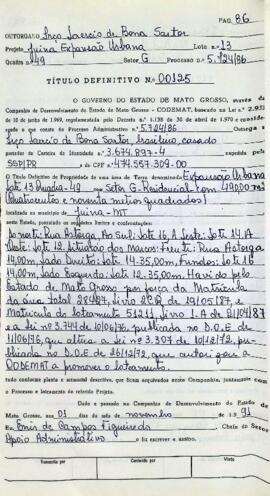 PAG. 86
OUTORGADO Irço Laercio de Bona Sartor
Projeto Juina Expansão Urbana Lote n.º 13
Quadra n.º 49 Setor G Processo n.º 5.724/86
TÍTULO DEFINITIVO N.º 00125
O GOVERNO DO ESTADO DE MATO GROSSO, através da
Companhia de Desenvolvimento do Estado de Mato Grosso - CODEMAT, baseado na Lei n.º 2.931
10 de junho de 1969, regulamentada pelo Decreto n.º 1.138 de 30 de abril de 1970 e considerando
o que consta do Processo Administrativo n.º 5.724/86 Outorga a
Irço Laercio de Bona Sartor, brasileiro, casado
portador da Carteira de Identidade n.º 3.674.897-4 expedida pela
SSP/PR do CPF n.º 474.557.309-00
o Título Definitivo de Propriedade de uma área de Terra denominada Expansão Urbana
Lote 13 Quadra-49 Setor G-Residencial com 490,00 m²
(Quatrocentos e noventa metros quadrados)
localizada no município de Juina-MT
neste Estado, com os seguintes limites e confrontações:
Ao norte: Rua Astorga, Ao Sul: Lote 16, A Leste: Lote 14, A
Oeste: Lote 12. Situação dos Marcos: Frente: Rua Astorga
14,00m, Lado Direito: Lote 14-35,00m, Fundos: Lote 16
14,00m, Lado Esquerdo: Lote 12-35,00m. Havido pelo
Estado de Mato Grosso por força da Matrícula
da área total 28487, Livro 2CR de 19/05/87, e
Matricula do loteamento 51211, Livro 1-A de 21/04/87
e a Lei nº 3.744 de 10/06/76, publicada no D.O.E de
11/06/76, que altera a Lei nº 3.307 de 18/12/72, pu-
blicada no D.O.E de 26/12/72, que autorizou a
CODEMAT a promover o loteamento.
tudo conforme planta e memorial descritivo, que ficam arquivados nesta Companhia, juntamente com
o Processo e Livramento do referido Projeto.
Dado e passado na Companhia de Desenvolvimento do Estado de
Mato Grosso, aos 01 dias do mês de novembro de 1991
Eu, Enis de Campos Figueiredo Chefe do Setor
Apoio Administrativo o fiz escrever e assino.
Transcrito por
Conferido por
Visto